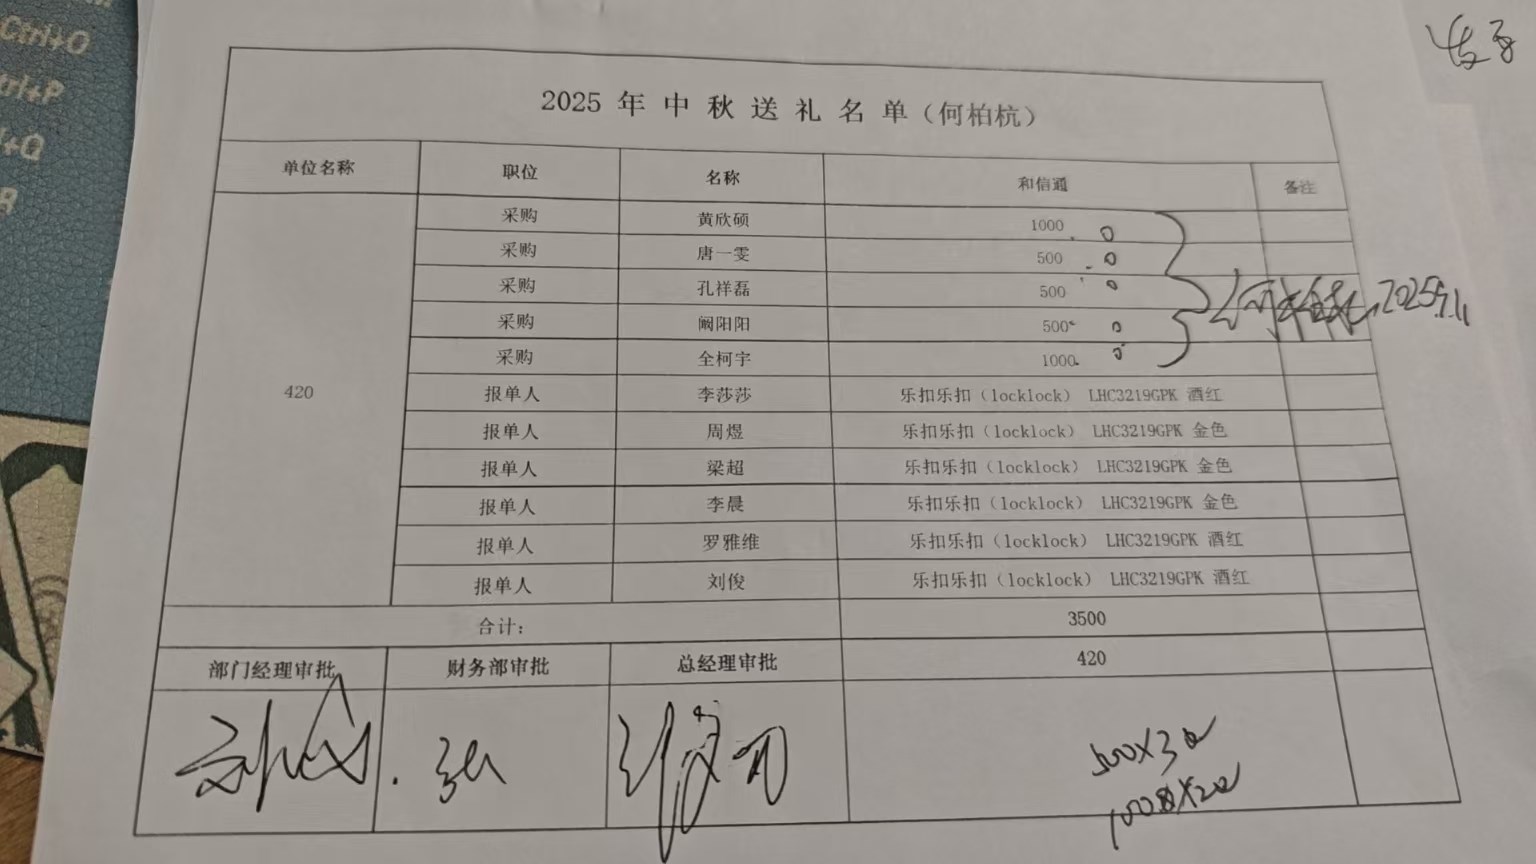 Ctrl+O
Ctrl+P
+Q
2025 年 中 秋 送 礼 名 单（何柏杭）
单位名称 职位 名称 和信通 备注
采购 黄欣硕 1000
采购 唐一雯 500
采购 孔祥磊 500
采购 阚阳阳 500
采购 全柯宇 1000
何柏杭 2025.9.11
420
报单人 李莎莎 乐扣乐扣（locklock） LHC3219GPK 酒红
报单人 周煜 乐扣乐扣（locklock） LHC3219GPK 金色
报单人 梁超 乐扣乐扣（locklock） LHC3219GPK 金色
报单人 李晨 乐扣乐扣（locklock） LHC3219GPK 金色
报单人 罗雅维 乐扣乐扣（locklock） LHC3219GPK 酒红
报单人 刘俊 乐扣乐扣（locklock） LHC3219GPK 酒红
合计： 3500
部门经理审批 财务部审批 总经理审批 420
500×3
1000×2